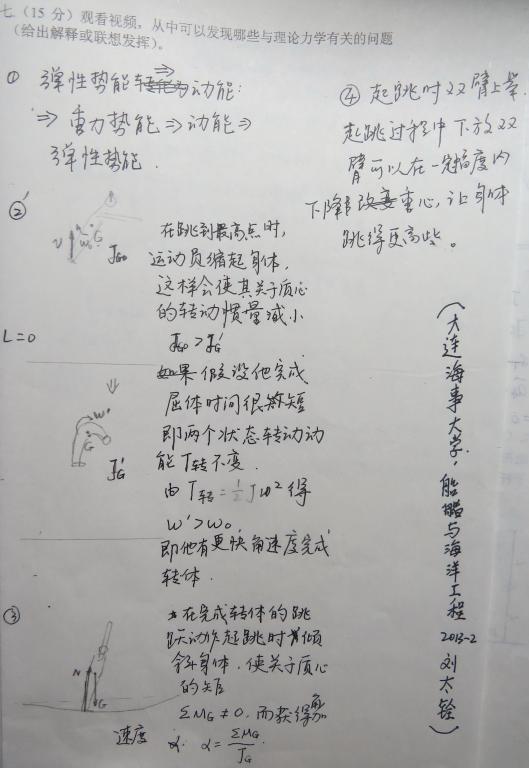 七(15分)观看视频,从中可以发现哪些与理论力学有关的问题
(给出解释或联想发挥)。
① 弹性势能⇒动能:
⇒重力势能⇒动能⇒
弹性势能.
②
V
W₀
G
J_G0
在跳到最高点时,
运动员缩起身体,
这样会使其关于质心
的转动惯量减小
J_G0 > J_G'
L=0
如果假设他完成
屈体时间很短
即两个状态转动动
能T转不变.
由T转=½Jω²得
ω'>ω₀
即他有更快角速度完成
转体.
⇓
W'
G
J_G'
③
N
G
在完成转体的跳
跃动作起跳时倾
斜身体.使关于质心
的矩
ΣM_G≠0.而获得角加
速度 α. α=ΣM_G/J_G.
④ 起跳时双臂上举.
起跳过程中下放双
臂可以在一定幅度内
下降重心,让身体
跳得更高些。
(大连海事大学,船舶与海洋工程 2013-2 刘太铨)